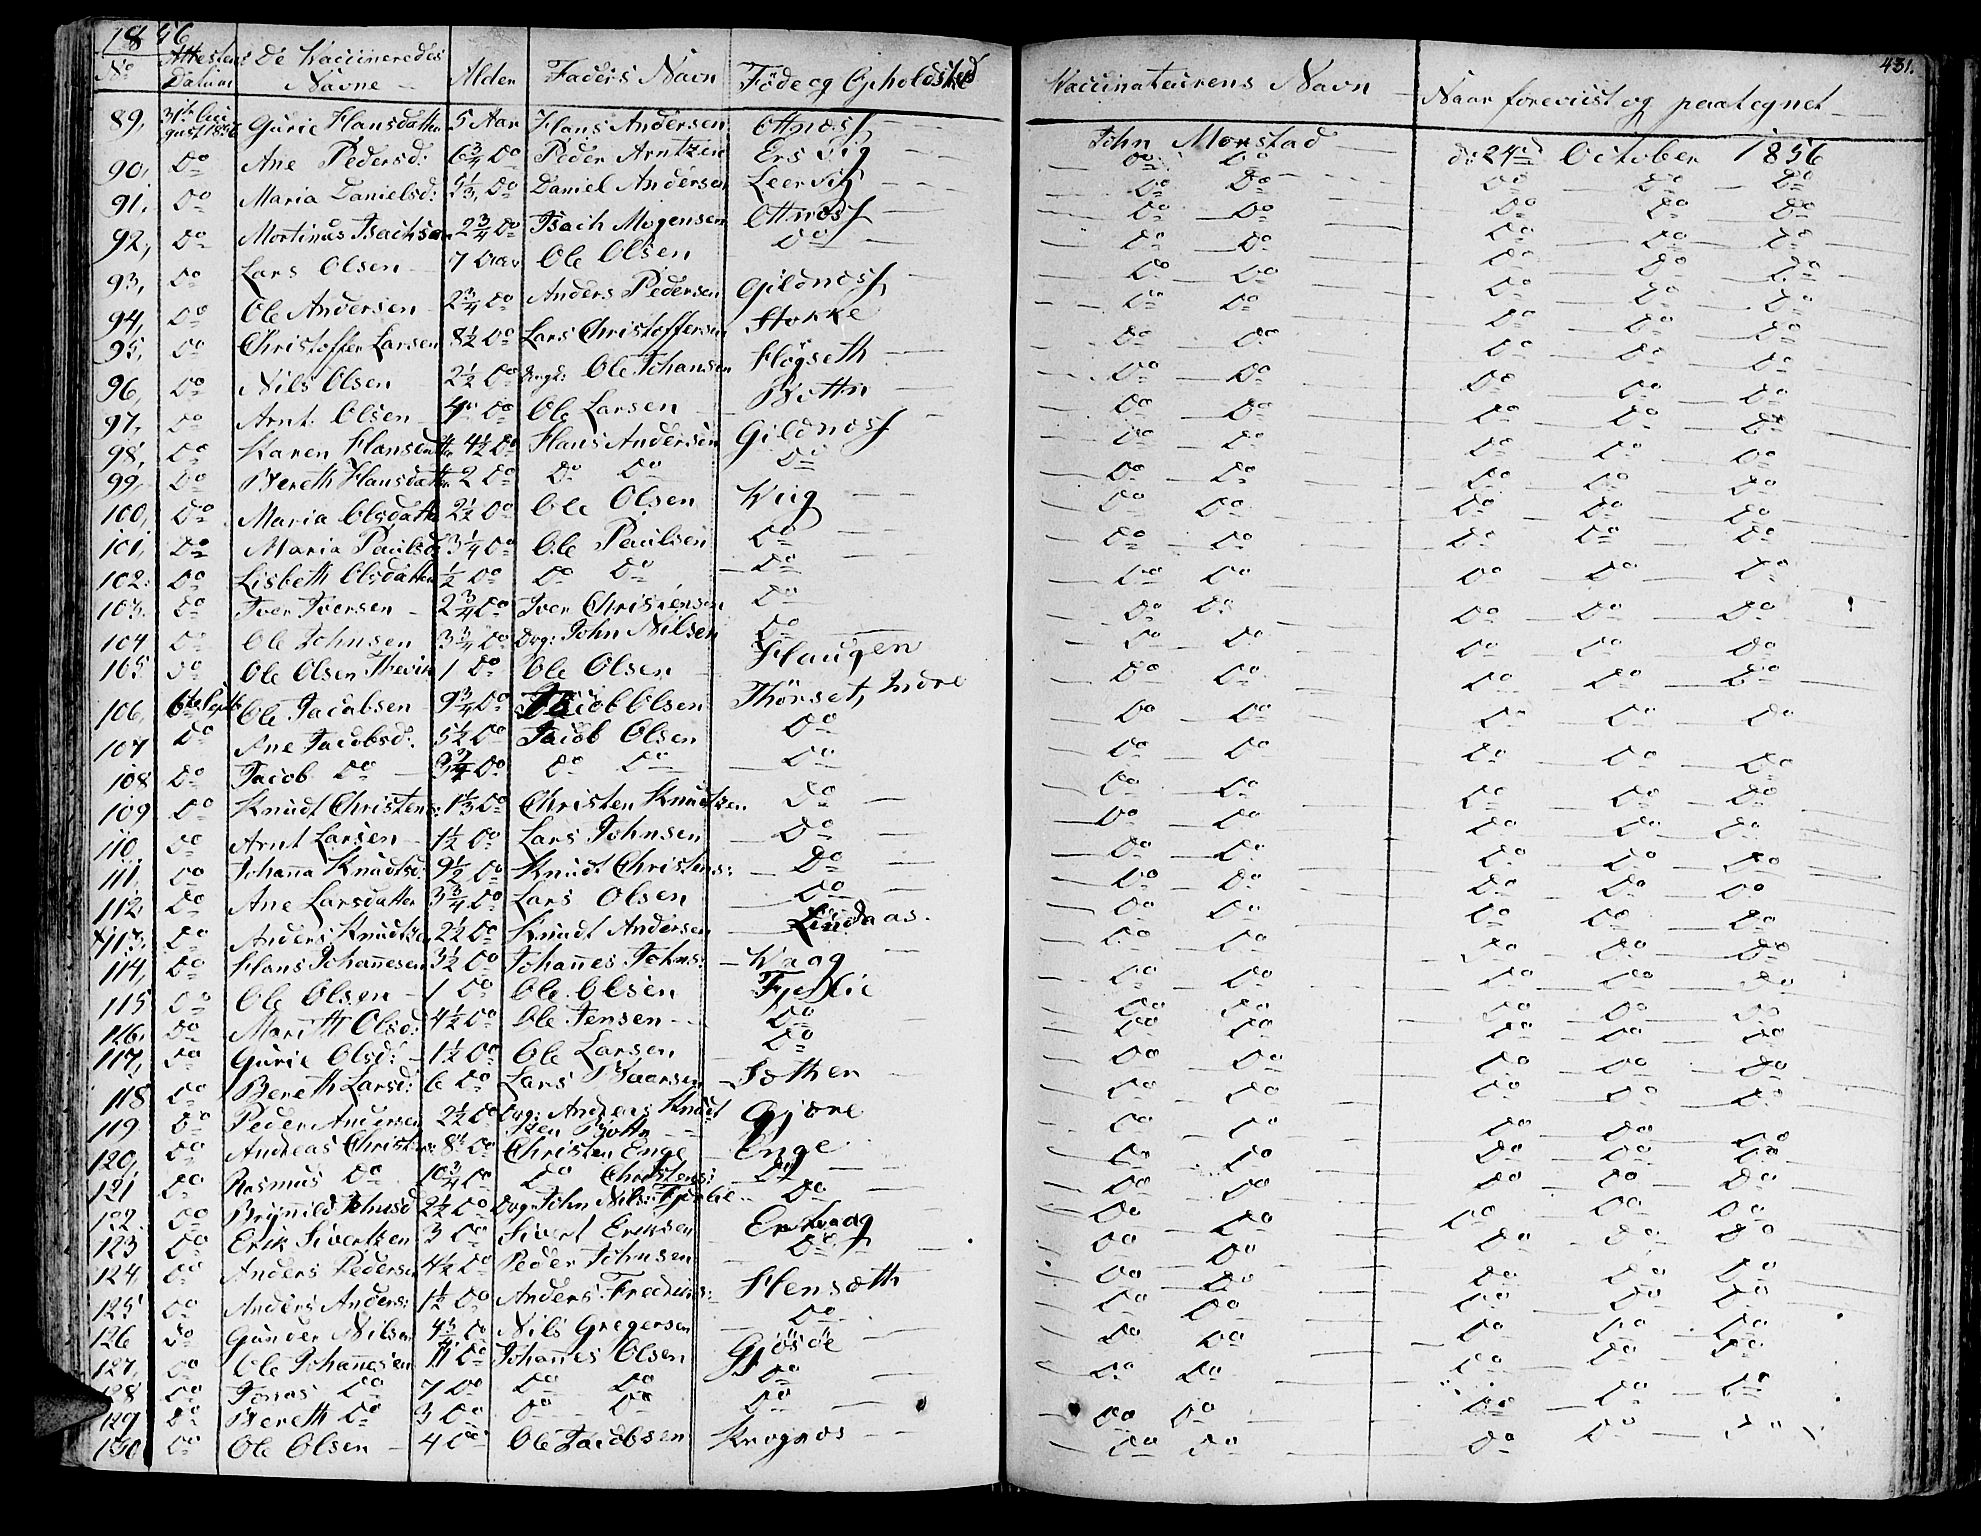 1856
No Attestens Datum De Vaccineredes Navne Alder Faders Navn Föde og Opholdsted Vaccinateurens Navn Naar foreviist og paategnet 431.
89, 31te August 1856 Gurie Hansdatter 5 Aar Hans Andersen Ottnæs John Monstad d: 24de October 1856
90, Do Ane Pedersd: 6 3/4 Do Peder Arntzen Ersvig Do Do Do Do Do
91, Do Maria Danielsd: Do Daniel Andersen Leervig Do Do Do Do Do
92, Do Martinus Isachsen 2 3/4 Do Isach Mogensen Ottnæs Do Do Do Do Do
93, Do Lars Olsen 7 Aar Ole Olsen Do Do Do Do Do Do
94, Do Ole Andersen 2 3/4 Do Anders Pedersen Gildnæs Do Do Do Do Do
95, Do Christoffer Larsen 8 1/2 Do Lars Christoffersen Stokke Do Do Do Do Do
96, Do Nils Olsen 2 1/2 Do Ole Johansen Högseth Do Do Do Do Do
97, Do Arnt Olsen 4 Do Ole Larsen Bottn Do Do Do Do Do
98, Do Karen Hansdtr 4 1/2 Do Hans Andersen Gildnæs Do Do Do Do Do
99, Do Bereth Hansdatter 2 Do Do Do Do Do Do Do Do Do
100, Do Maria Olsdatter 2 1/2 Do Ole Olsen Wiig Do Do Do Do Do
101, Do Maria Paulsd 3 1/4 Do Ole Paulsen Do Do Do Do Do Do
102: Do Lisbeth Olsdatter 1/2 Do Do Do Do Do Do Do Do Do
103. Do Iver Iversen 2 3/4 Do Iver Christensen Do Do Do Do Do Do
104 Do Ole Johnsen 3 3/4 Do Drg: John Nilsen Do Do Do Do Do Do
105 Do Ole Olsen 1 Do Ole Olsen Haugen Do Do Do Do Do
106, 6te Septb Ole Jacobsen 9 3/4 Do Jacob Olsen Thorset, Indre Do Do Do Do Do
107 Do Ane Jacobsd: 5 1/2 Do Jacob Olsen Do Do Do Do Do Do
108 Do Jacob Do 3 3/4 Do Do Do Do Do Do Do Do Do
109 Do Knudt Christens: 1 1/3 Do Christen Knudtzen Do Do Do Do Do Do
110, Do Arnt Larsen 1 1/2 Do Lars Johnsen Do Do Do Do Do Do
111, Do Johanna Knudtsd: 9 1/2 Do Knudt Christens: Do Do Do Do Do Do
112, Do Ane Larsdatter 3 3/4 Do Lars Olsen Do Do Do Do Do Do
113, Do Anders Knudtzen 2 1/2 Do Knudt Andersen Lindaas. Do Do Do Do Do
114, Do Hans Johannesen 3 1/2 Do Johannes Johns: Waag Do Do Do Do Do
115 Do Ole Olsen 1 Do Ole Olsen Fjerlie Do Do Do Do Do
116, Do Marith Olsd: 4 1/2 Do Ole Jensen Do Do Do Do Do Do
117, Do Gurie Olsd: 1 1/2 Do Ole Larsen Do Do Do Do Do Do
118 Do Bereth Larsd: 6 Do Lars Baarsen Sother Do Do Do Do Do
119 Do Peder Andersen 2 1/2 Do Drg: Anders Knudtzen Bottn Gjöre Do Do Do Do Do
120, Do Andreas Christens: 8 1/2 Do Christen Enge Enge Do Do Do Do Do
121 Do Rasmus Do 10 3/4 Do Do Christens: Do Do Do Do Do Do
122 Do Brynild Johnsd 2 1/2 Do Drg: John Nils: Fjerlie Do Do Do Do Do Do
123 Do Erik Sivertsen 3 Do Sivert Eriksen Ersvaag Do Do Do Do Do
124 Do Anders Pedersen 4 1/2 Do Peder Johnsen Do Do Do Do Do Do
125 Do Anders Anders: 1 1/2 Do Anders Frederiks: Henseth Do Do Do Do Do
126 Do Gunder Nilsen 4 3/4 Do Nils Gregersen Do Do Do Do Do Do
127, Do Ole Johannesen 11 Do Johannes Olsen Gjösöe Do Do Do Do Do
128 Do Jonas Do 7 Do Do Do Do Do Do Do Do Do
129 Do Bereth Do 3 Do Do Do Do Do Do Do Do Do
130 Do Ole Olsen 4 Do Ole Jacobsen Krognæs Do Do Do Do Do